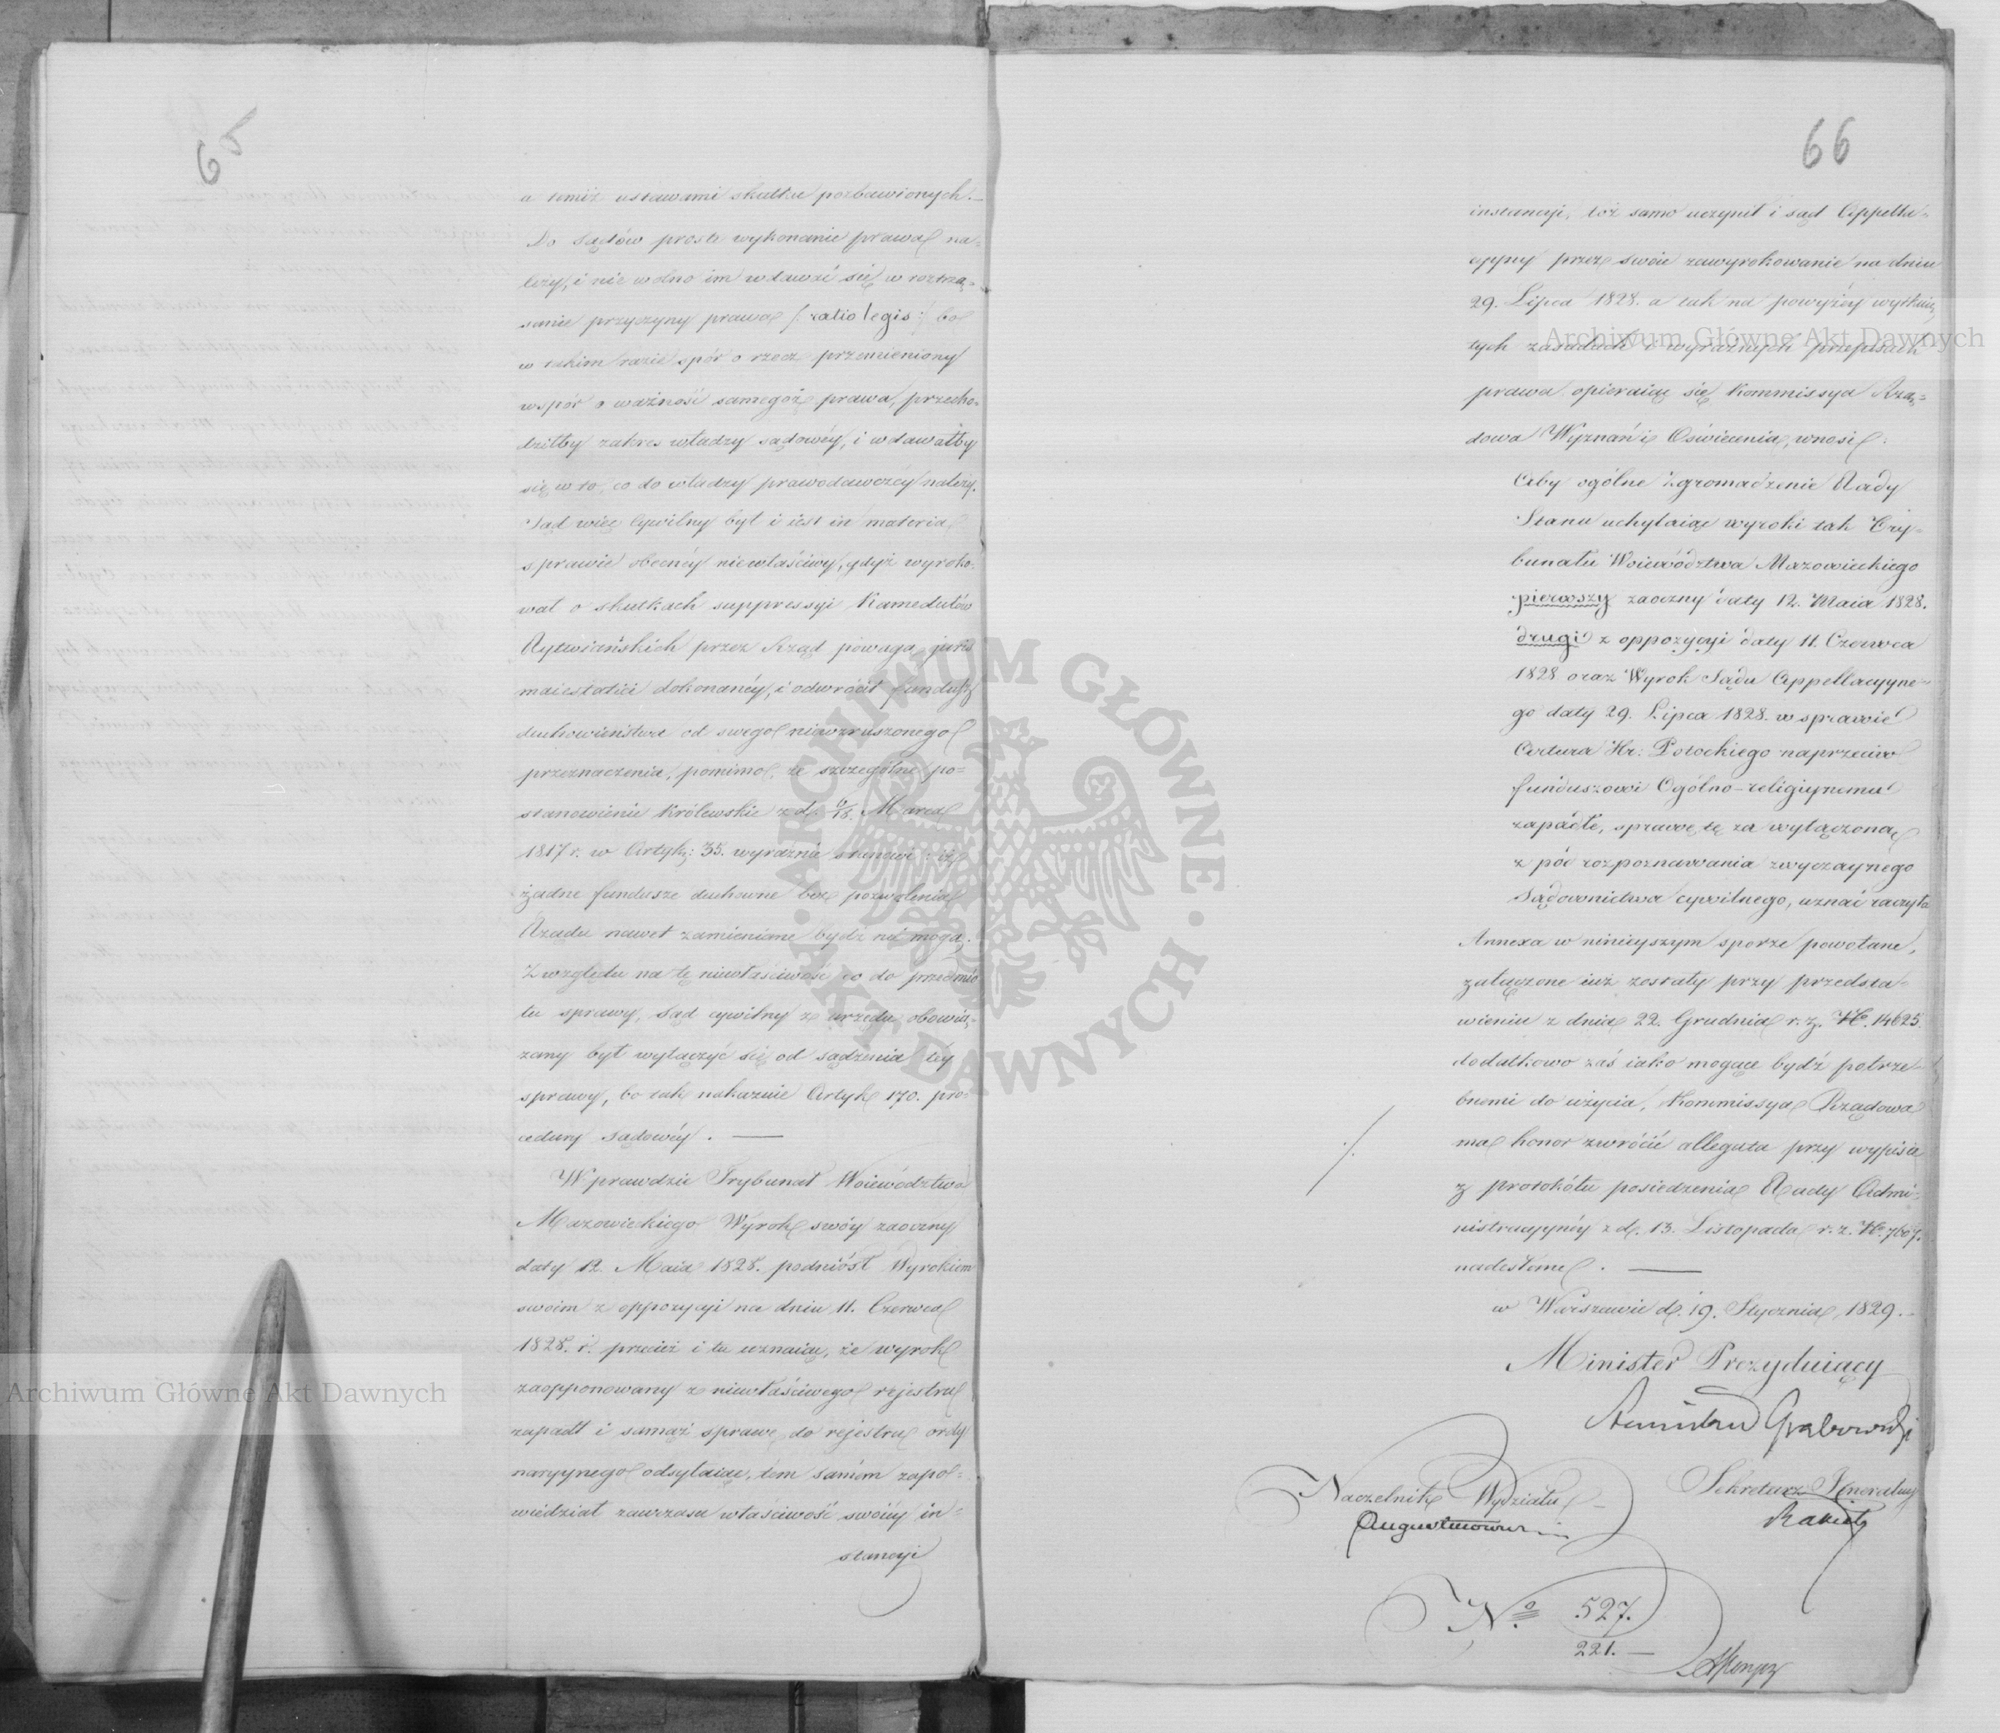 65
a temiż ustawami skutku pozbawionych. —
Do Sądów proste wykonanie prawa na-
leży, i nie wolno im wdawać się w roztrzą-
sanie przyczyny prawa /: ratio legis :/ bo
w takim razie spór o rzecz przemieniony
w spór o ważność samegoż prawa, przecho-
dziłby zakres władzy sądowéy, i wdawałby
się w to, co do władzy prawodawczéy należy.
Sąd więc Cywilny był i iest in materia
sprawie obecnéy niewłaściwy, gdyż wyroko-
wał o skutkach suppressyi Kamedułów
Rytwiańskich przez Rząd powagą juris
maiestatici dokonanéy, i odwrócił fundusz
duchowieństwa od swego niewzruszonego
przeznaczenia, pomimo, że szczególne po-
stanowienie Królewskie z d. 6/18. Marca
1817 r. w Artyk: 35. wyraźnie stanowi: iż
żadne fundusze duchowne bez pozwolenia
Rządu nawet zamieniane bydź nie mogą.
Z względu na tę niewłaściwość co do przedmio
tu sprawy, Sąd cywilny z urzędu obowią-
zany był wyłączyć się od sądzenia téy
sprawy, bo tak nakazuie Artyk 170. pro-
cedury sądowéy. —
W prawdzie Trybunał Woiewództwa
Mazowieckiego Wyrok swóy zaoczny
daty 12. Maia 1828. podniósł Wyrokiem
swoim z oppozycyi na dniu 11. Czerwca
1828. r. przecież i tu uznaiąc, że wyrok
zaopponowany z niewłaściwego rejestru
zapadł i samąż sprawę do rejestru ordy
naryynego odsyłaiąc, tem samem zapo-
wiedział zawczasu właściwość swoiéy in-
stancyi
66
instancyi, toż samo uczynił i sąd Appella-
cyyny przez swoie zawyrokowanie na dniu
29. Lipca 1828. a tak na powyżéy wytknię
tych zasadach i wyraźnych przepisach
prawa opieraiąc się Kommissya Rzą-
dowa Wyznań i Oświecenia, wnosi:
Aby ogólne Zgromadzenie Rady
Stanu uchylaiąc wyroki tak Try-
bunału Woiewództwa Mazowieckiego
pierwszy zaoczny daty 12. Maia 1828.
drugi z oppozycyi daty 11. Czerwca
1828 oraz Wyrok Sądu Appellacyyne-
go daty 29. Lipca 1828. w sprawie
Artura Hr: Potockiego naprzeciw
funduszowi Ogólno-religiynemu
zapadłe, sprawę tę za wyłączoną
z pód rozpoznawania zwyczaynego
Sądownictwa cywilnego, uznać raczyła
Annexa w ninieyszym sporze powołane,
załączone iuż zostały przy przedsta-
wieniu z dnia 22. Grudnia r. z. № 14625
dodatkowo zaś iako mogące bydź potrze-
bnemi do użycia, Kommissya Rządowa
ma honor zwrócić allegata przy wypisie
z protokółu posiedzenia Rady Admi-
nistracyynéy z d. 13. Listopada r. z. №. 7607.
nadesłane. —
w Warszawie d. 19. Stycznia 1829.
Minister Prezyduiący
Stanisław Grabowski
Naczelnik Wydziału
Sekretarz Jeneralny
Augustinowicz
№ 527.
221. —
Archiwum Główne Akt Dawnych
Archiwum Główne Akt Dawnych
ARCHIWUM GŁÓWNE · AKT DAWNYCH ·